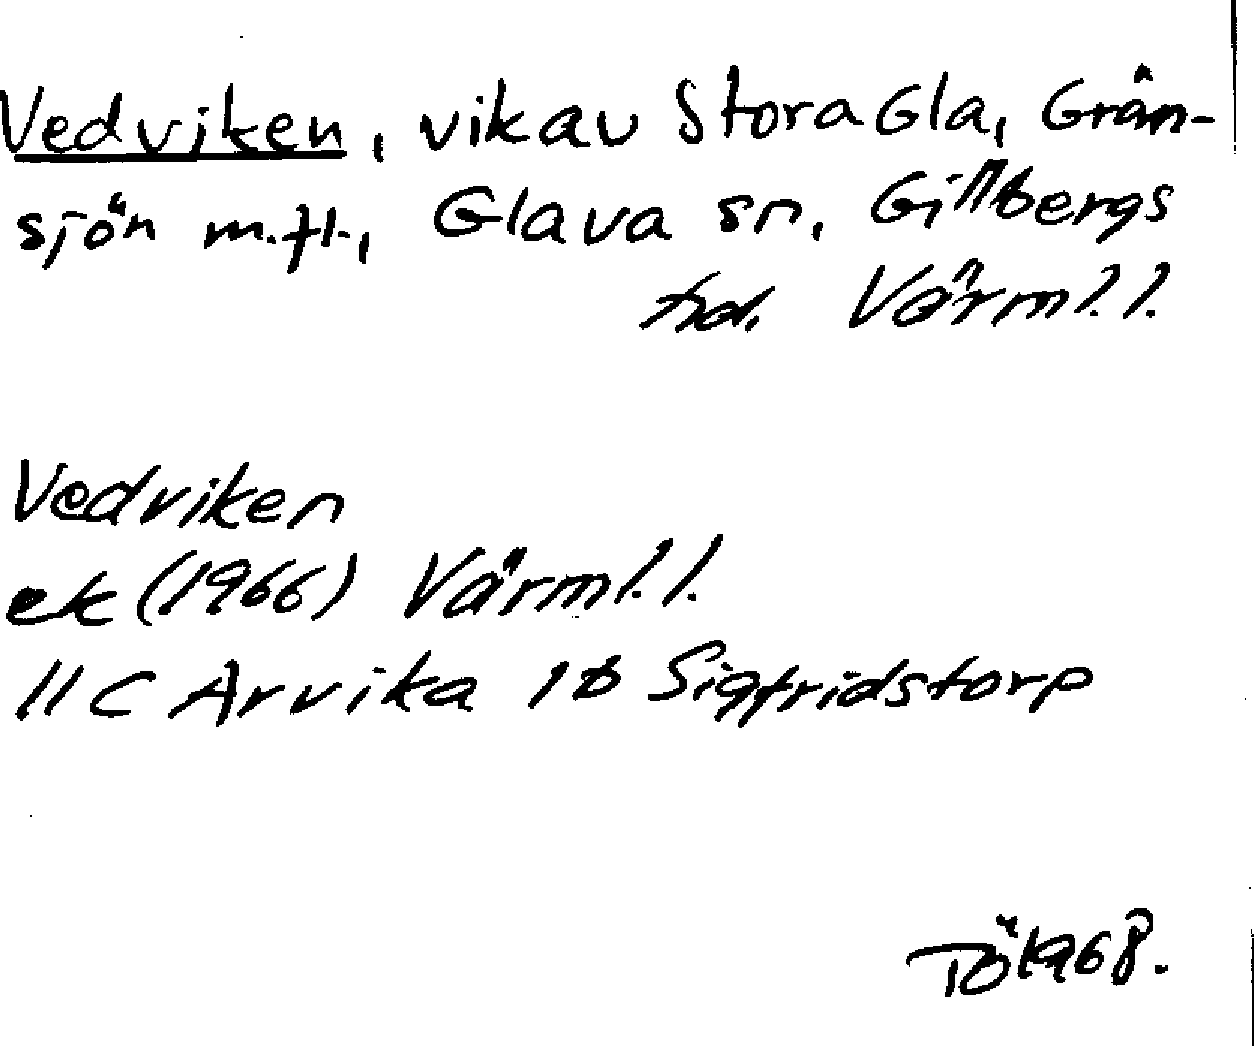 Vedviken, vik av Stora Gla, Grän-
sjön m.fl., Glava sn, Gillbergs
hd. Värml. l.
Vedviken
ek (1966) Värml. l.
11C Arvika 1b Sigfridstorp
TÖ 1968.